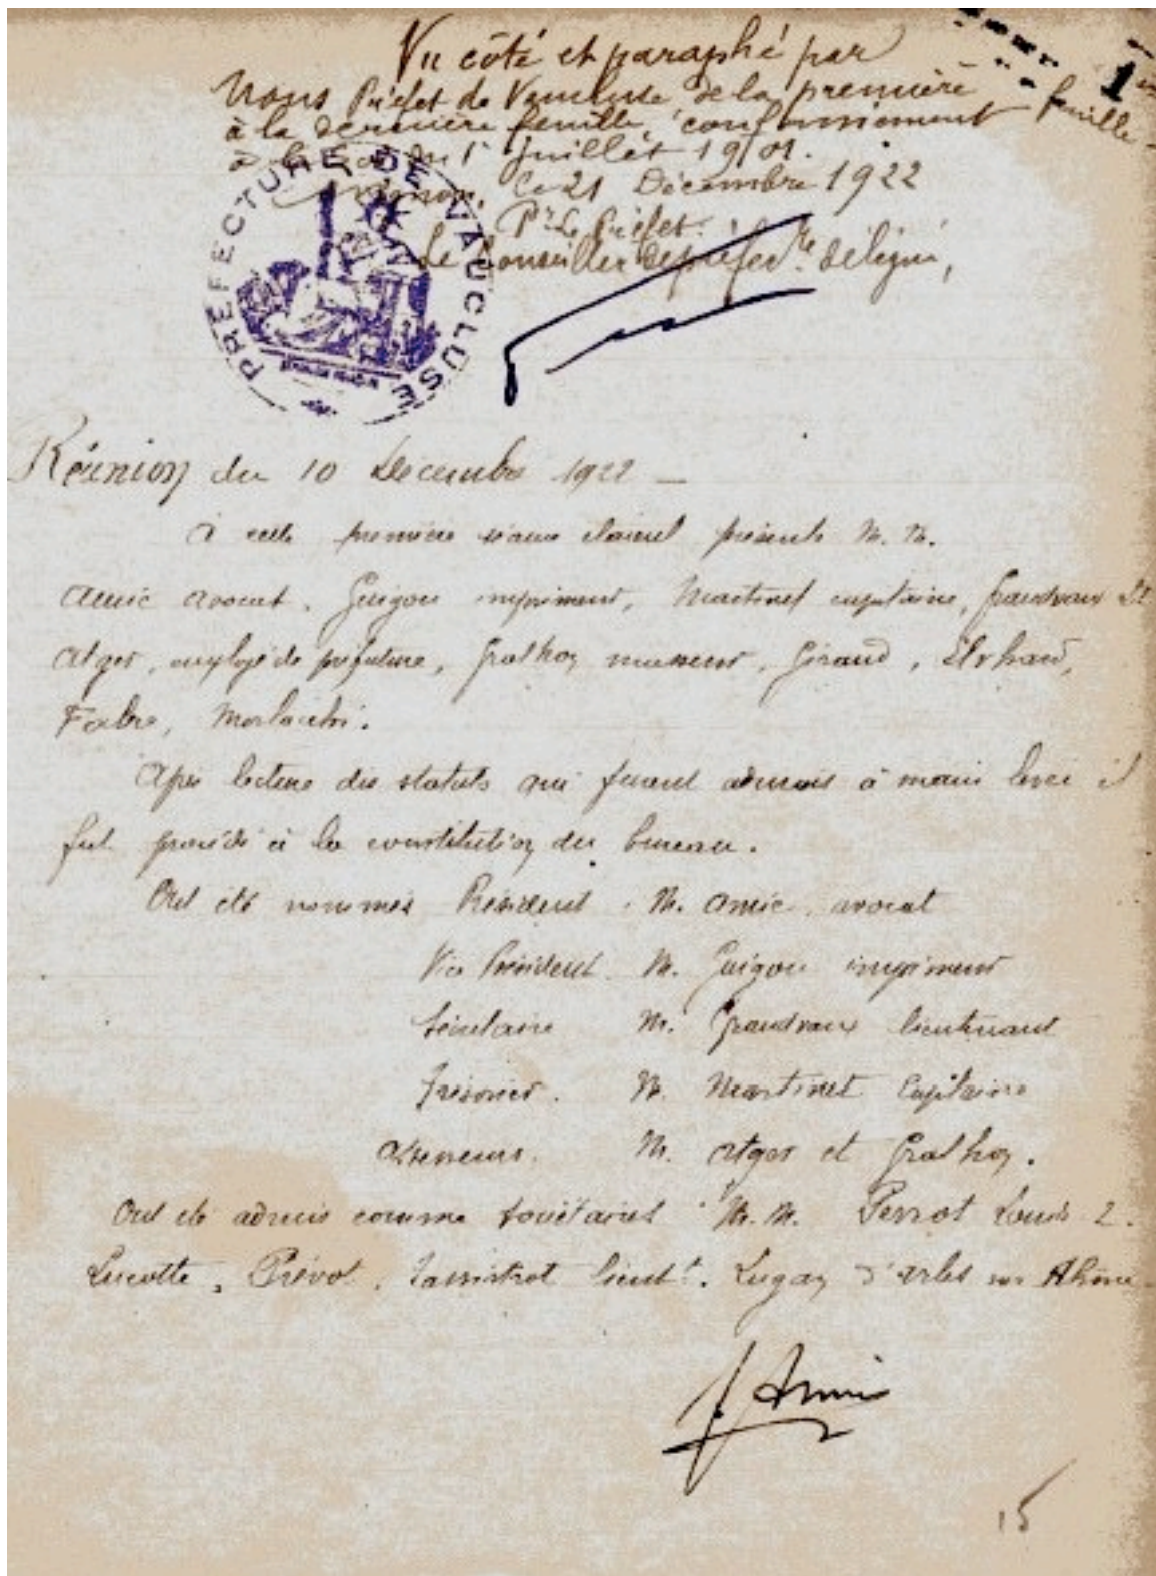 Vu coté et paraphé par
Nous Préfet de Vaucluse, de la première feuille
à la dernière feuille, conformément
à la loi du 1er Juillet 1901.
Avignon, le 21 Décembre 1922
Pr Le Préfet.
Le Conseiller de préfecre délégué,
1
PREFECTURE DE VAUCLUSE
Réunion du 10 Décembre 1922 –
à cette première séance étaient présents M. M.
Amic avocat, Guigou imprimeur, Martinet capitaine, Grandvaux Lt
Atger, employé de préfecture, Gralhon masseur, Giraud,
Fabre,
Après lecture des statuts qui furent admis à main levée il
fut procédé à la constitution du bureau.
Ont été nommés Président M. Amic, avocat
Vice Président M. Guigou imprimeur
Secrétaire M. Grandvaux lieutenant
Trésorier. M. Martinet Capitaine
Assesseurs. M. Atger et Gralhon.
Ont été admis comme sociétaires M. M. Perrot Louis
Lucotte, Prévot, lieutt. Lugan d'Arles sur Rhône
J. Amic
15